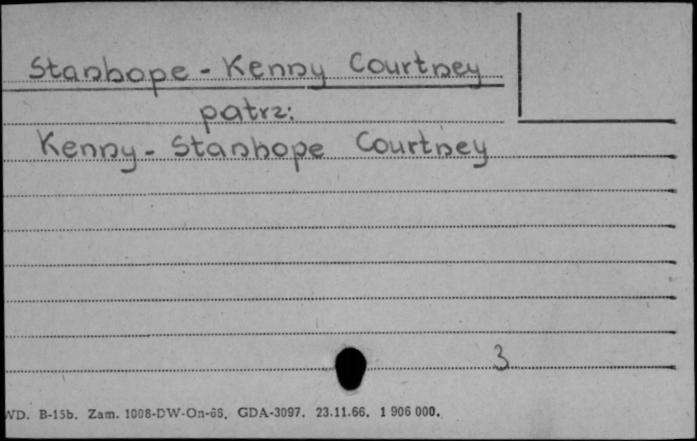 Stanhope - Kenny Courtney
patrz:
Kenny - Stanhope Courtney
3
WD. B-15b. Zam. 1008-DW-On-66. GDA-3097. 23.11.66. 1 906 000.